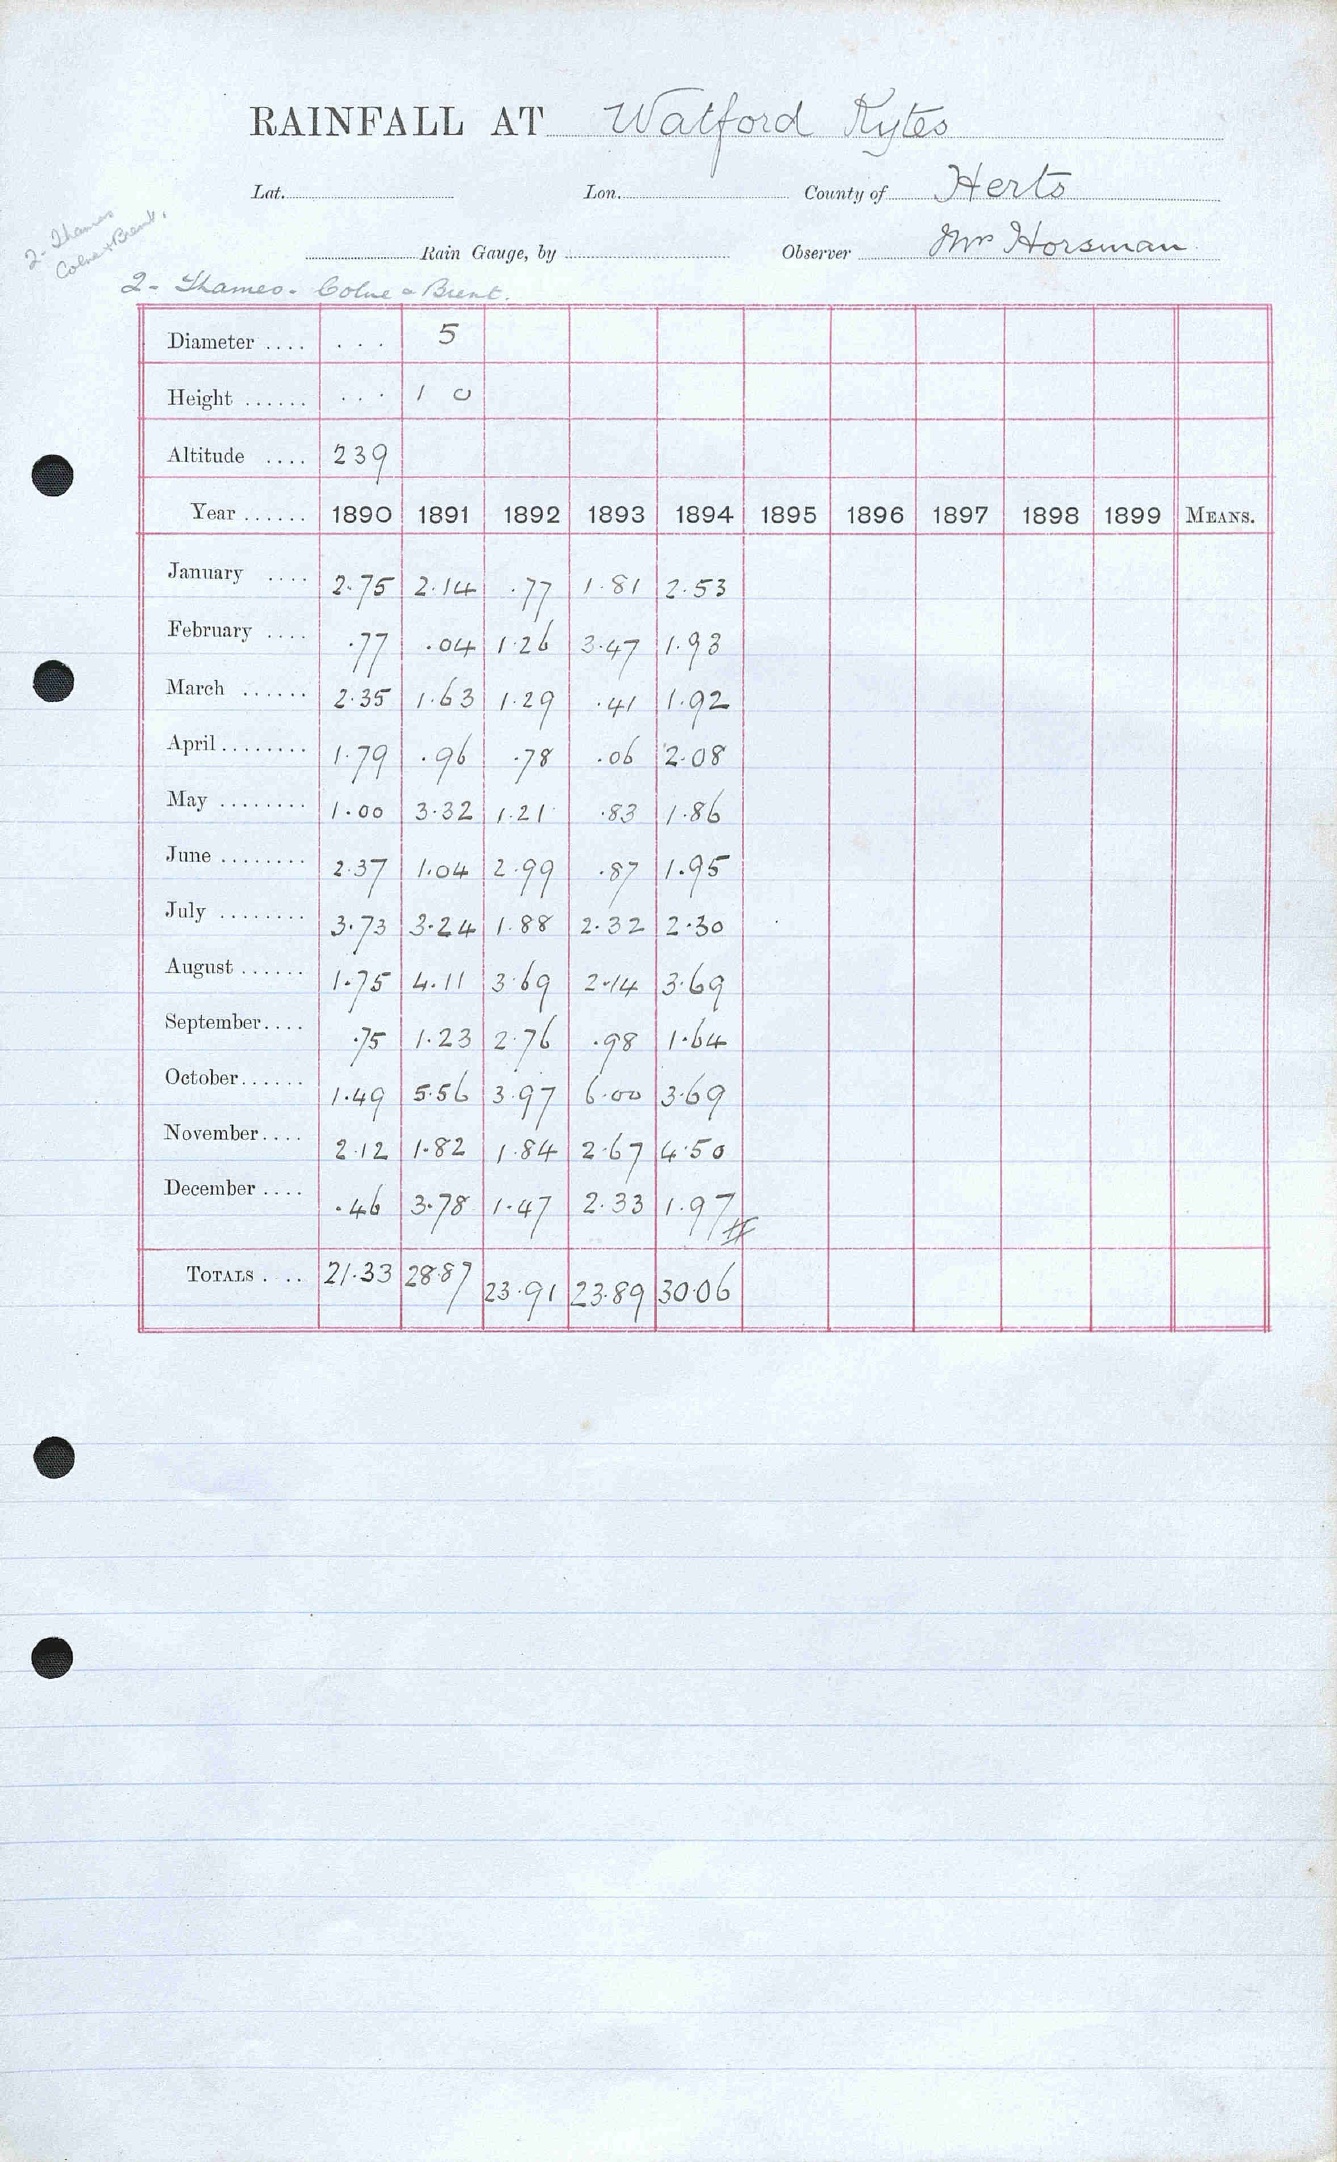 RAINFALL AT Watford Kytes
Lat. Lon. County of Herts
Rain Gauge, by Observer Mr Horsman
2- Thames
Colne & Brent.
2- Thames - Colne & Brent.
Diameter .... ... 5
Height ...... ... 1 0
Altitude .... 239
Year ...... 1890 1891 1892 1893 1894 1895 1896 1897 1898 1899 MEANS.
January .... 2.75 2.14 .77 1.81 2.53
February .... .77 .04 1.26 3.47 1.93
March ...... 2.35 1.63 1.29 .41 1.92
April ........ 1.79 .96 .78 .06 2.08
May ........ 1.00 3.32 1.21 .83 1.86
June ........ 2.37 1.04 2.99 .87 1.95
July ........ 3.73 3.24 1.88 2.32 2.30
August ...... 1.75 4.11 3.69 2.14 3.69
September.... .75 1.23 2.76 .98 1.64
October...... 1.49 5.56 3.97 6.00 3.69
November.... 2.12 1.82 1.84 2.67 4.50
December .... .46 3.78 1.47 2.33 1.97
TOTALS .... 21.33 28.87 23.91 23.89 30.06